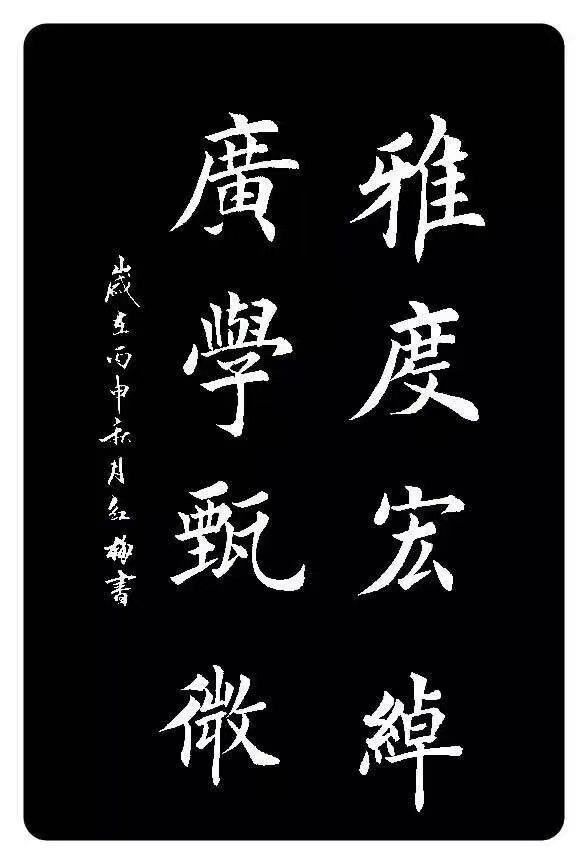 雅度宏綽
廣學甄微
歲在丙申秋月紅梅書